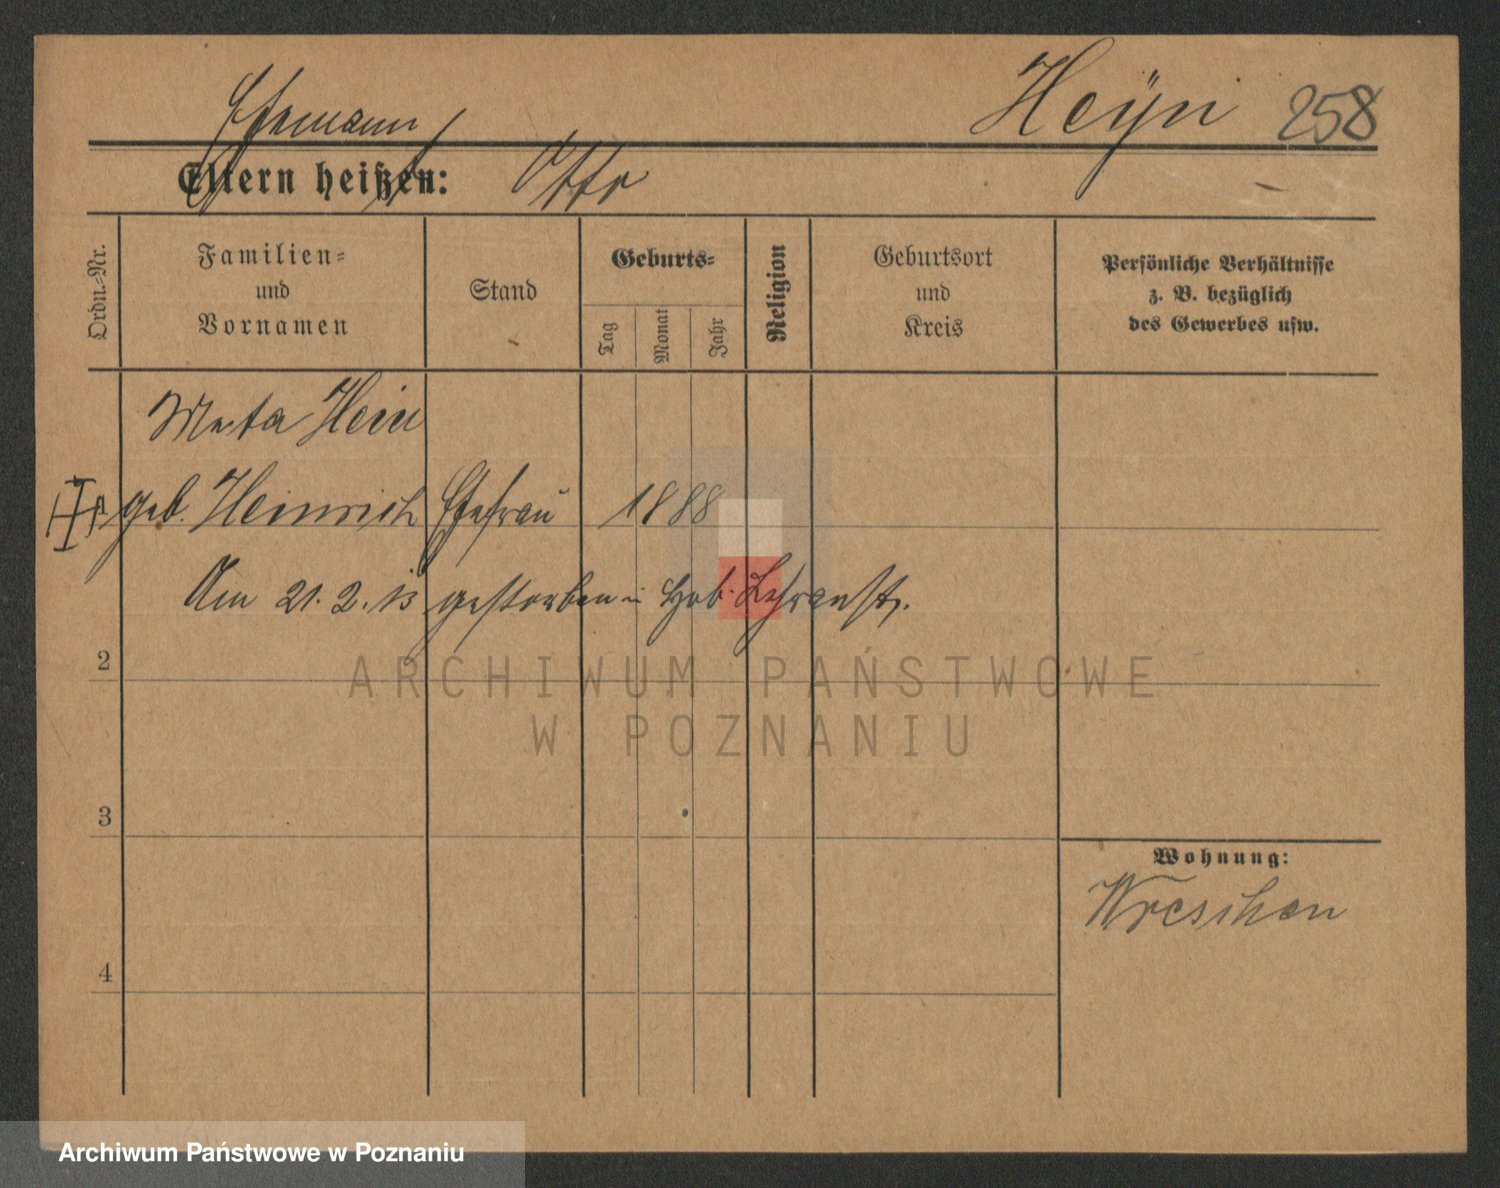 Heÿn 258
Ehemann
Eltern heißen: Otto
Ordn.-Nr.
Familien-
und
Vornamen
Stand
Geburts-
Tag
Monat
Jahr
Religion
Geburtsort
und
Kreis
Persönliche Verhältnisse
z. B. bezüglich
des Gewerbes usw.
Meta Hein
geb. Heinrich Ehefrau 1888
Am 21. 2. 13 gestorben in Heb. Lehranst.
2
3
4
Wohnung:
Wreschen
ARCHIWUM PAŃSTWOWE
W POZNANIU
Archiwum Państwowe w Poznaniu